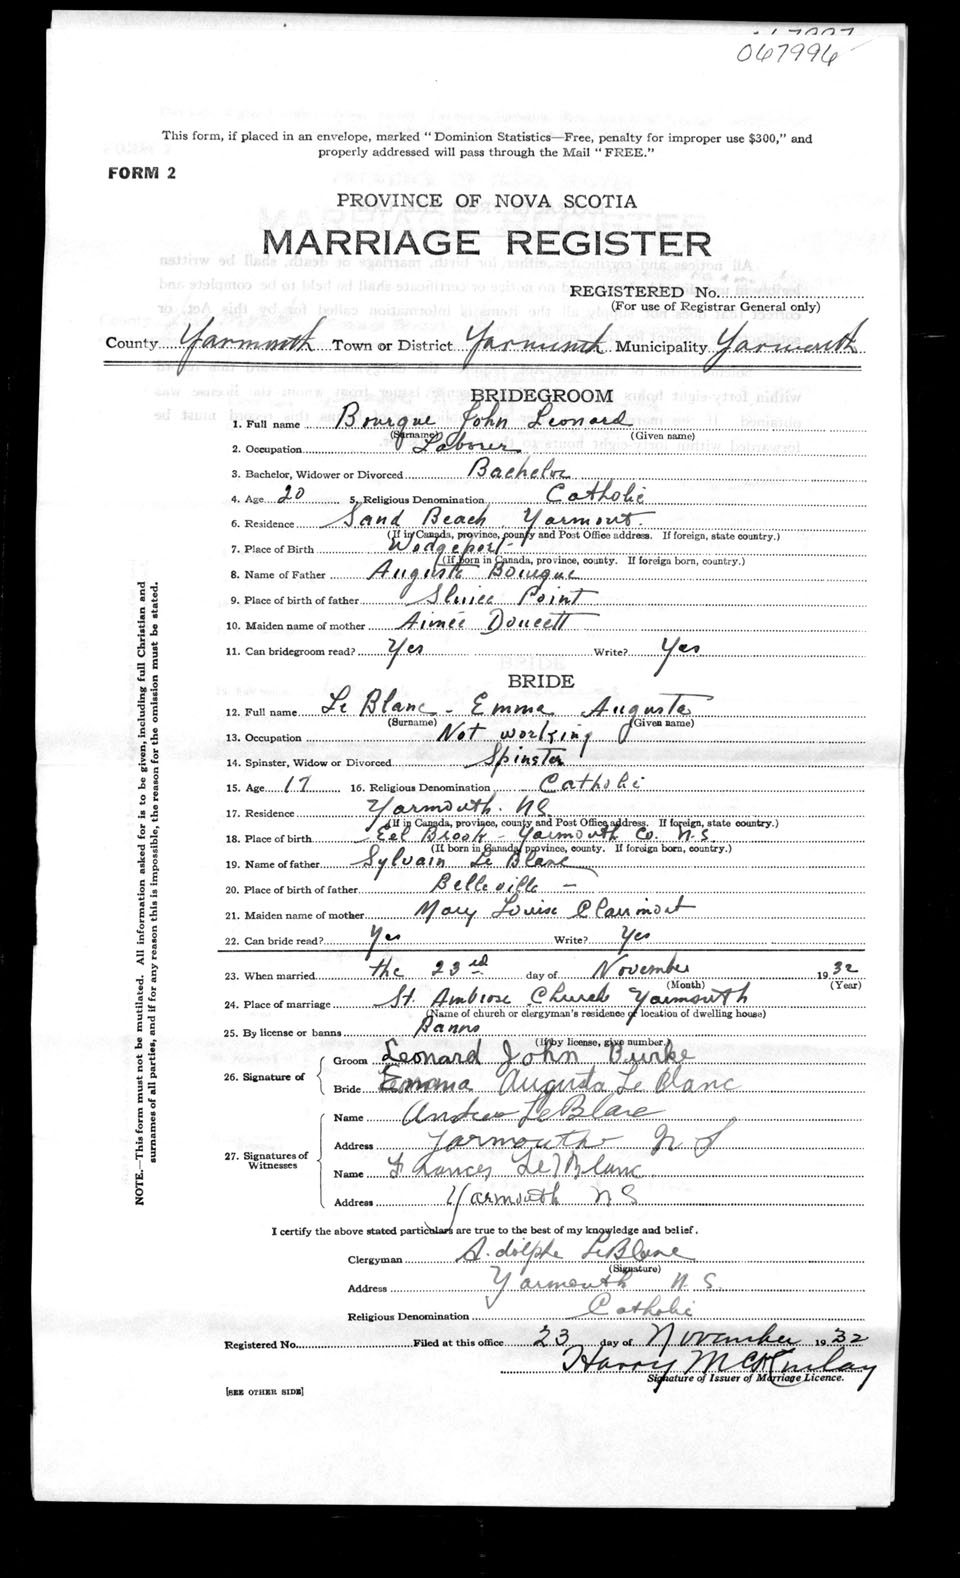 067996
This form, if placed in an envelope, marked “ Dominion Statistics—Free, penalty for improper use $300,” and
properly addressed will pass through the Mail “ FREE.”
FORM 2
PROVINCE OF NOVA SCOTIA
MARRIAGE REGISTER
REGISTERED No.
(For use of Registrar General only)
County Yarmouth Town or District Yarmouth Municipality Yarmouth
BRIDEGROOM
1. Full name Bourque John Leonard
(Surname) (Given name)
2. Occupation Laborer
3. Bachelor, Widower or Divorced Bachelor
4. Age 20 5. Religious Denomination Catholic
6. Residence Sand Beach Yarmout.
(If in Canada, province, county and Post Office address. If foreign, state country.)
7. Place of Birth Wedgeport
(If born in Canada, province, county. If foreign born, country.)
8. Name of Father Auguste Bourque
9. Place of birth of father Sluice Point
10. Maiden name of mother Aimée Doucett
11. Can bridegroom read? Yes Write? Yes
BRIDE
12. Full name Le Blanc - Emma Augusta
(Surname) (Given name)
13. Occupation Not working
14. Spinster, Widow or Divorced Spinster
15. Age 17 16. Religious Denomination Catholic
17. Residence Yarmouth. N.S.
(If in Canada, province, county and Post Office address. If foreign, state country.)
18. Place of birth Eel Brook - Yarmouth Co. N.S.
(If born in Canada, province, county. If foreign born, country.)
19. Name of father Sylvain Le Blanc
20. Place of birth of father Belleville —
21. Maiden name of mother Mary Louise Clairmont
22. Can bride read? Yes Write? Yes
23. When married the 23rd day of November 1932
(Month) (Year)
24. Place of marriage St. Ambrose Church Yarmouth
(Name of church or clergyman's residence or location of dwelling house)
25. By license or banns Banns
(If by license, give number.)
26. Signature of Groom Leonard John Burke
Bride Emma Augusta Le Blanc
27. Signatures of Witnesses Name LeBlanc
Address Yarmouth N S
Name Frances LeBlanc
Address Yarmouth N S
I certify the above stated particulars are true to the best of my knowledge and belief.
Clergyman Adolphe LeBlanc
(Signature)
Address Yarmouth N.S.
Religious Denomination Catholic
Registered No. Filed at this office 23 day of November 1932
Harry McKinlay
Signature of Issuer of Marriage Licence.
[SEE OTHER SIDE]
NOTE.—This form must not be mutilated. All information asked for is to be given, including full Christian and
surnames of all parties, and if for any reason this is impossible, the reason for the omission must be stated.